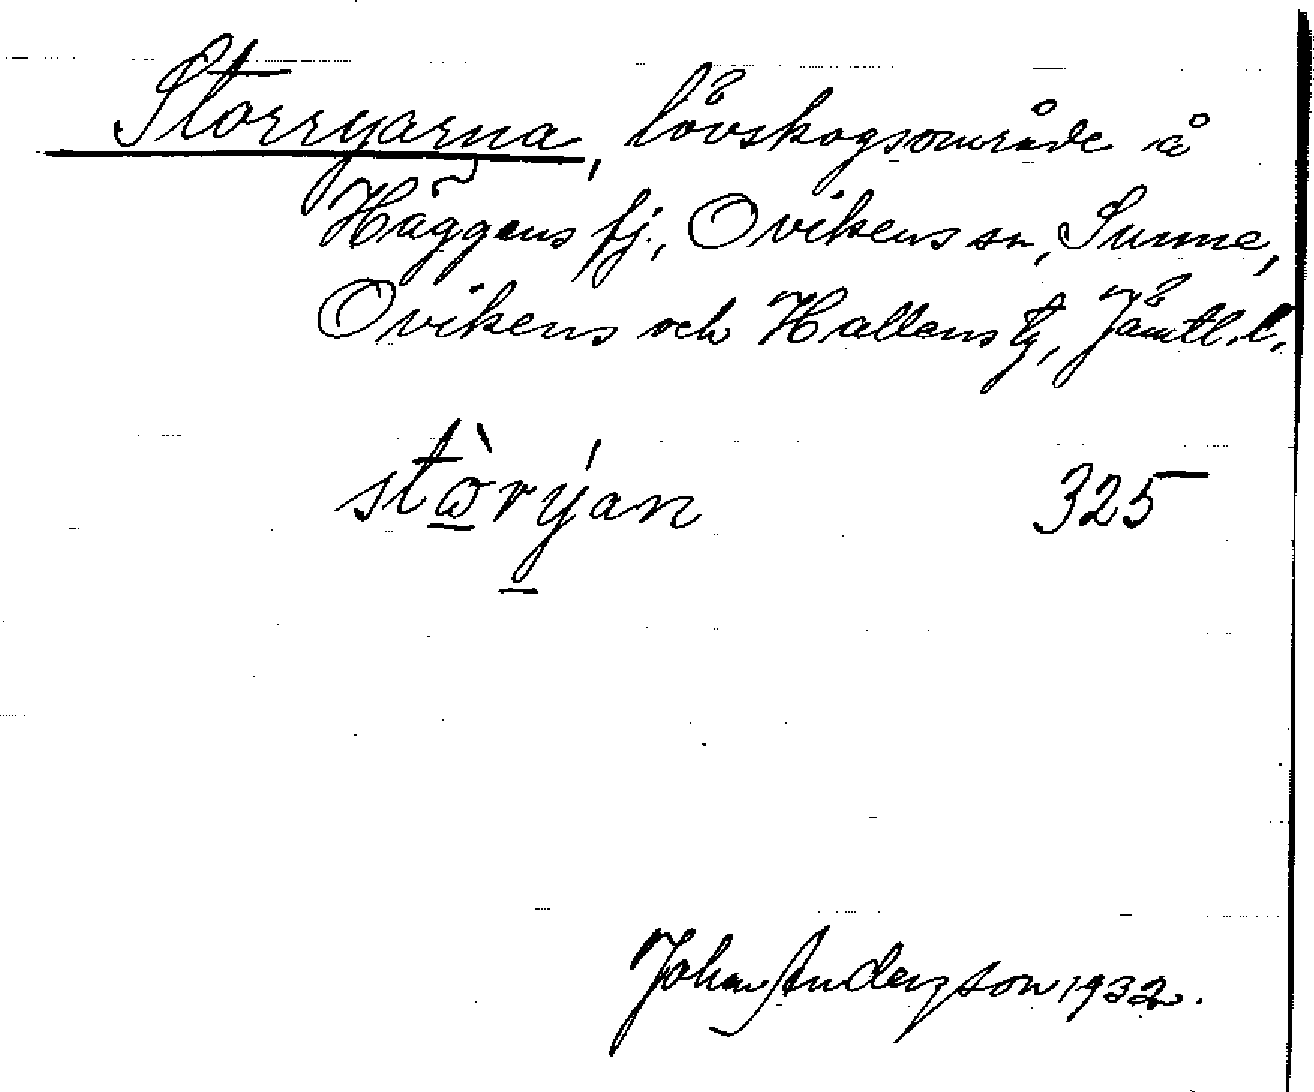 Storryarna, lövskogsområde å
Häggens fj., Ovikens sn, Sunne,
Ovikens och Hallens tg, Jämtl. l.
stòrýan 325
Johan Anderzson 1932.